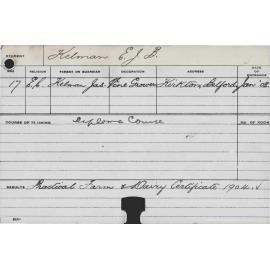 STUDENT Helman E. J. B.
AGE RELIGION PARENT OR GUARDIAN OCCUPATION ADDRESS DATE OF ENTRANCE
17 E.C. Helman Jas. Vine Grower Kirkton, Jan'
COURSE OF TRAINING NO. OF ROOM
Diploma Course
RESULTS Practical Farm & Dairy Certificate 1904.